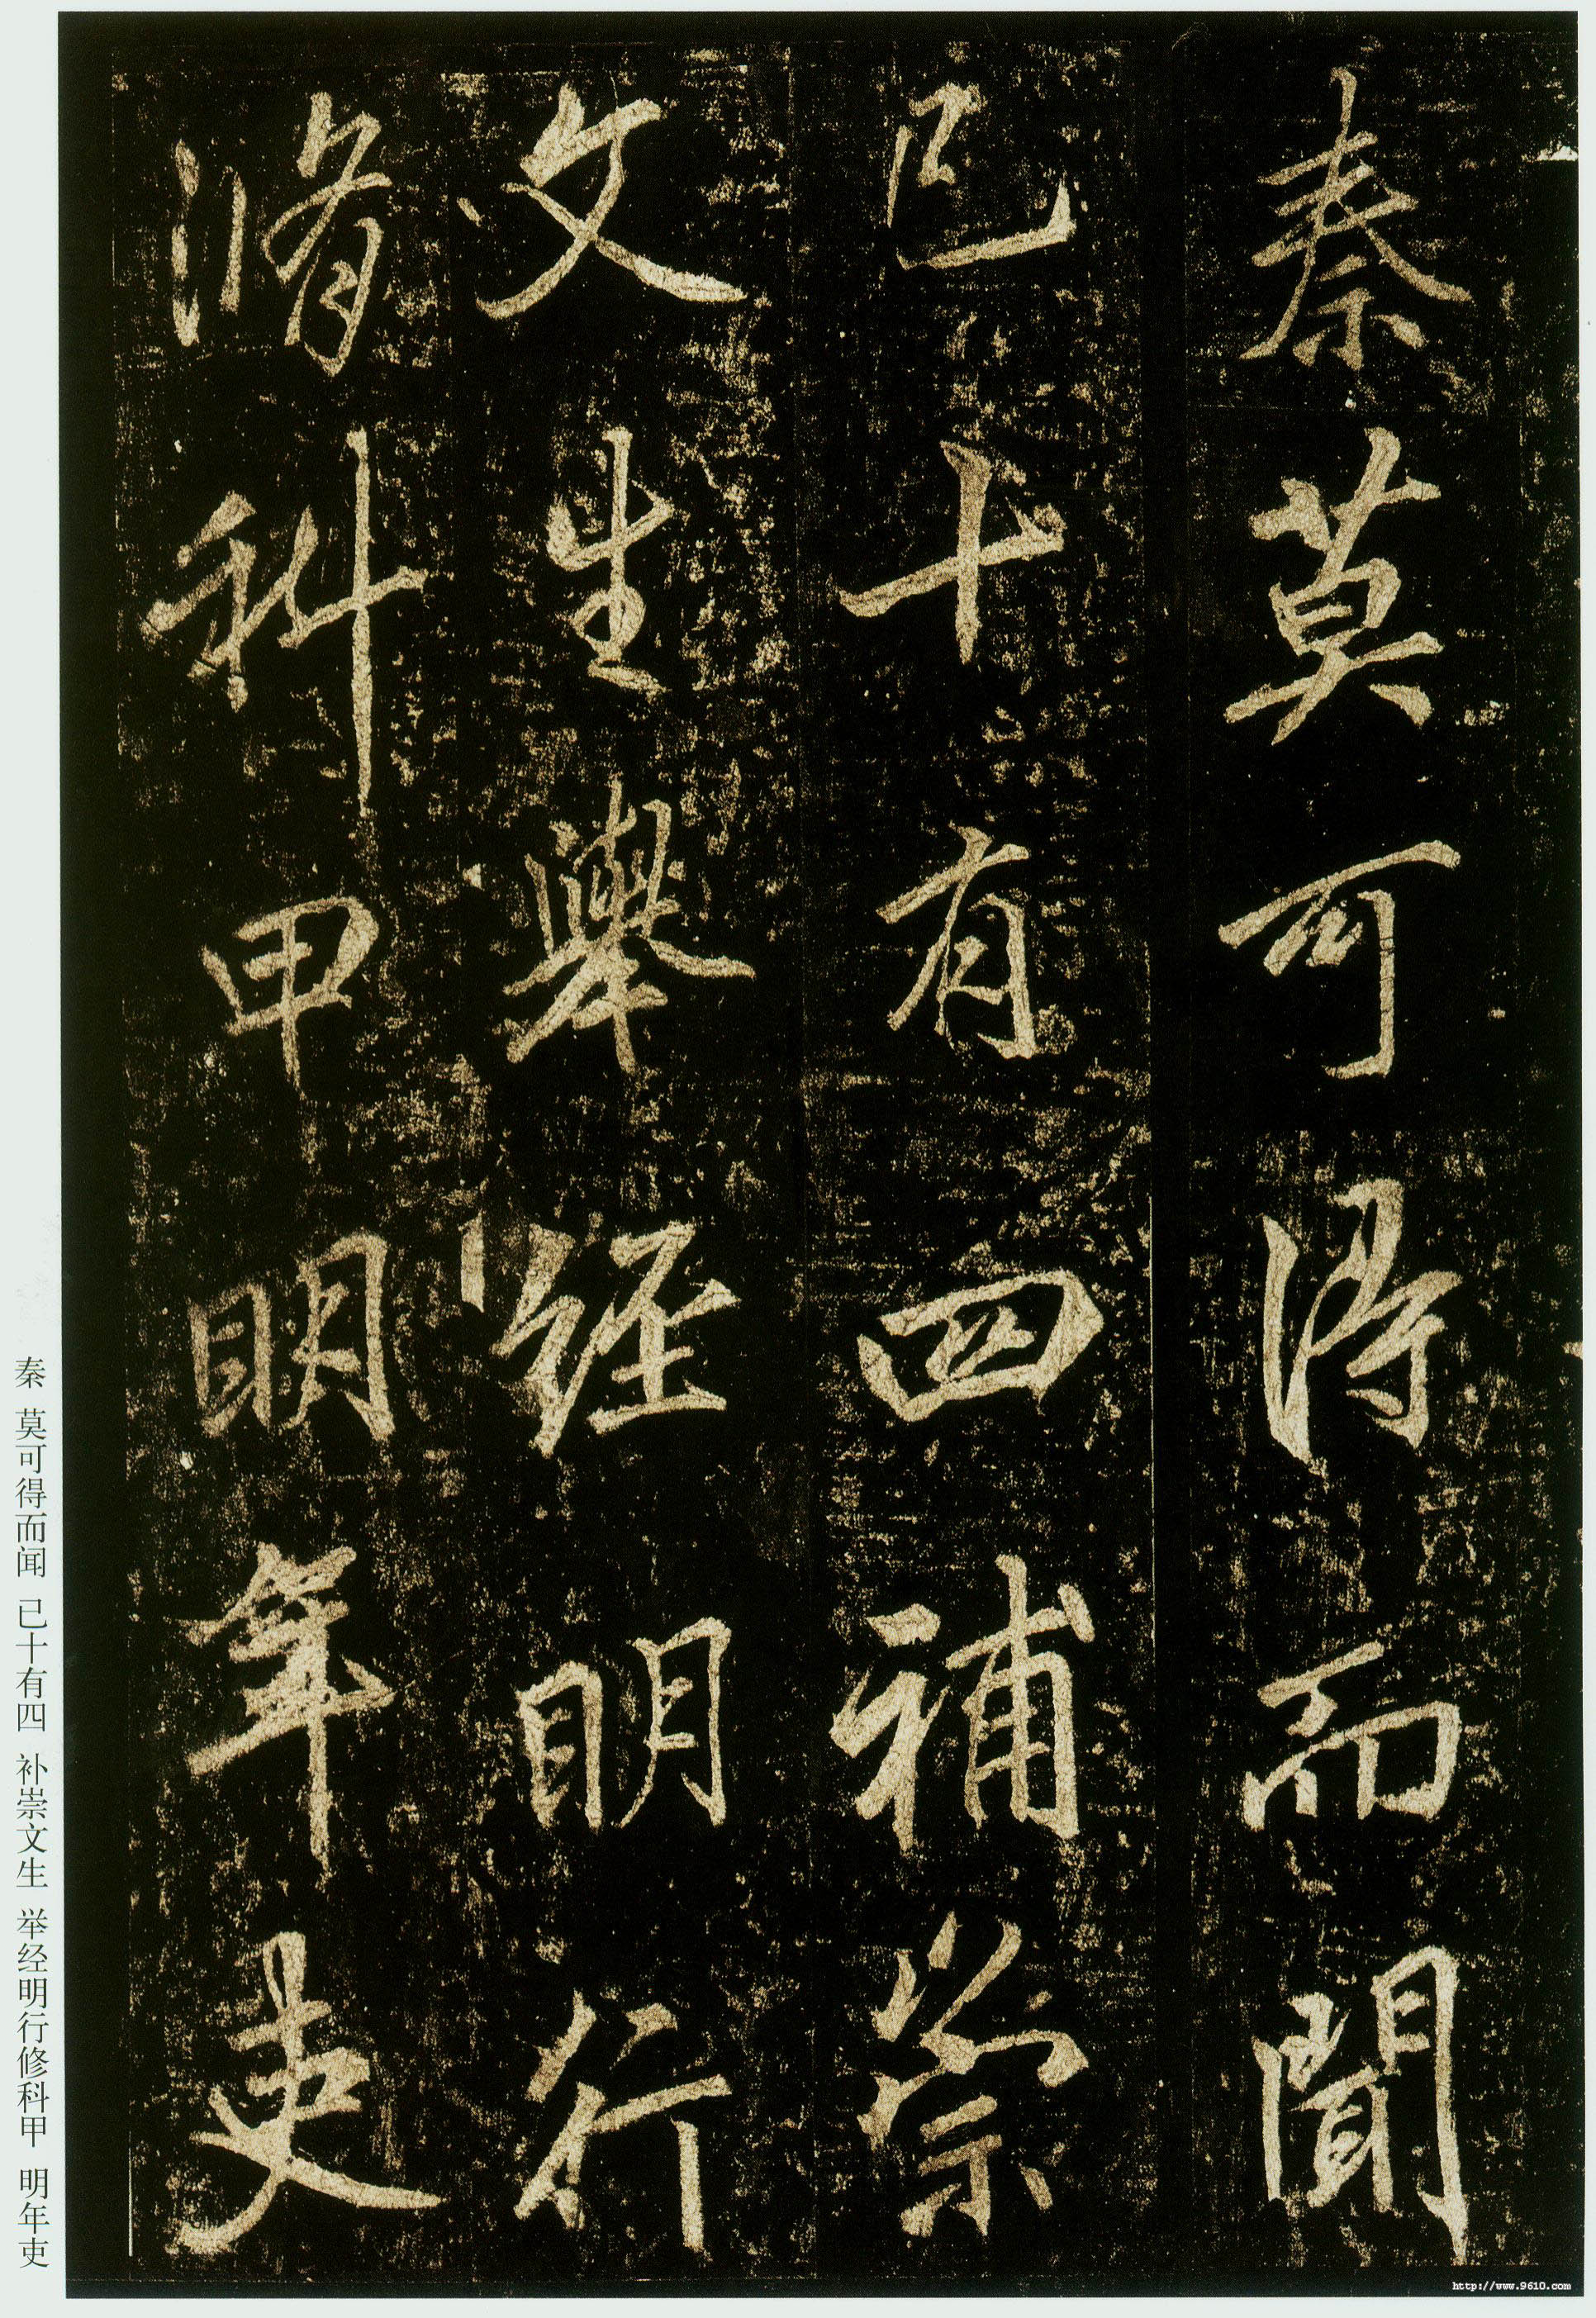 秦莫可得而聞
已十有四補崇
文生舉經明行
脩科甲明年吏
秦 莫可得而闻 已十有四 补崇文生 举经明行修科甲 明年吏
http://www.9610.com